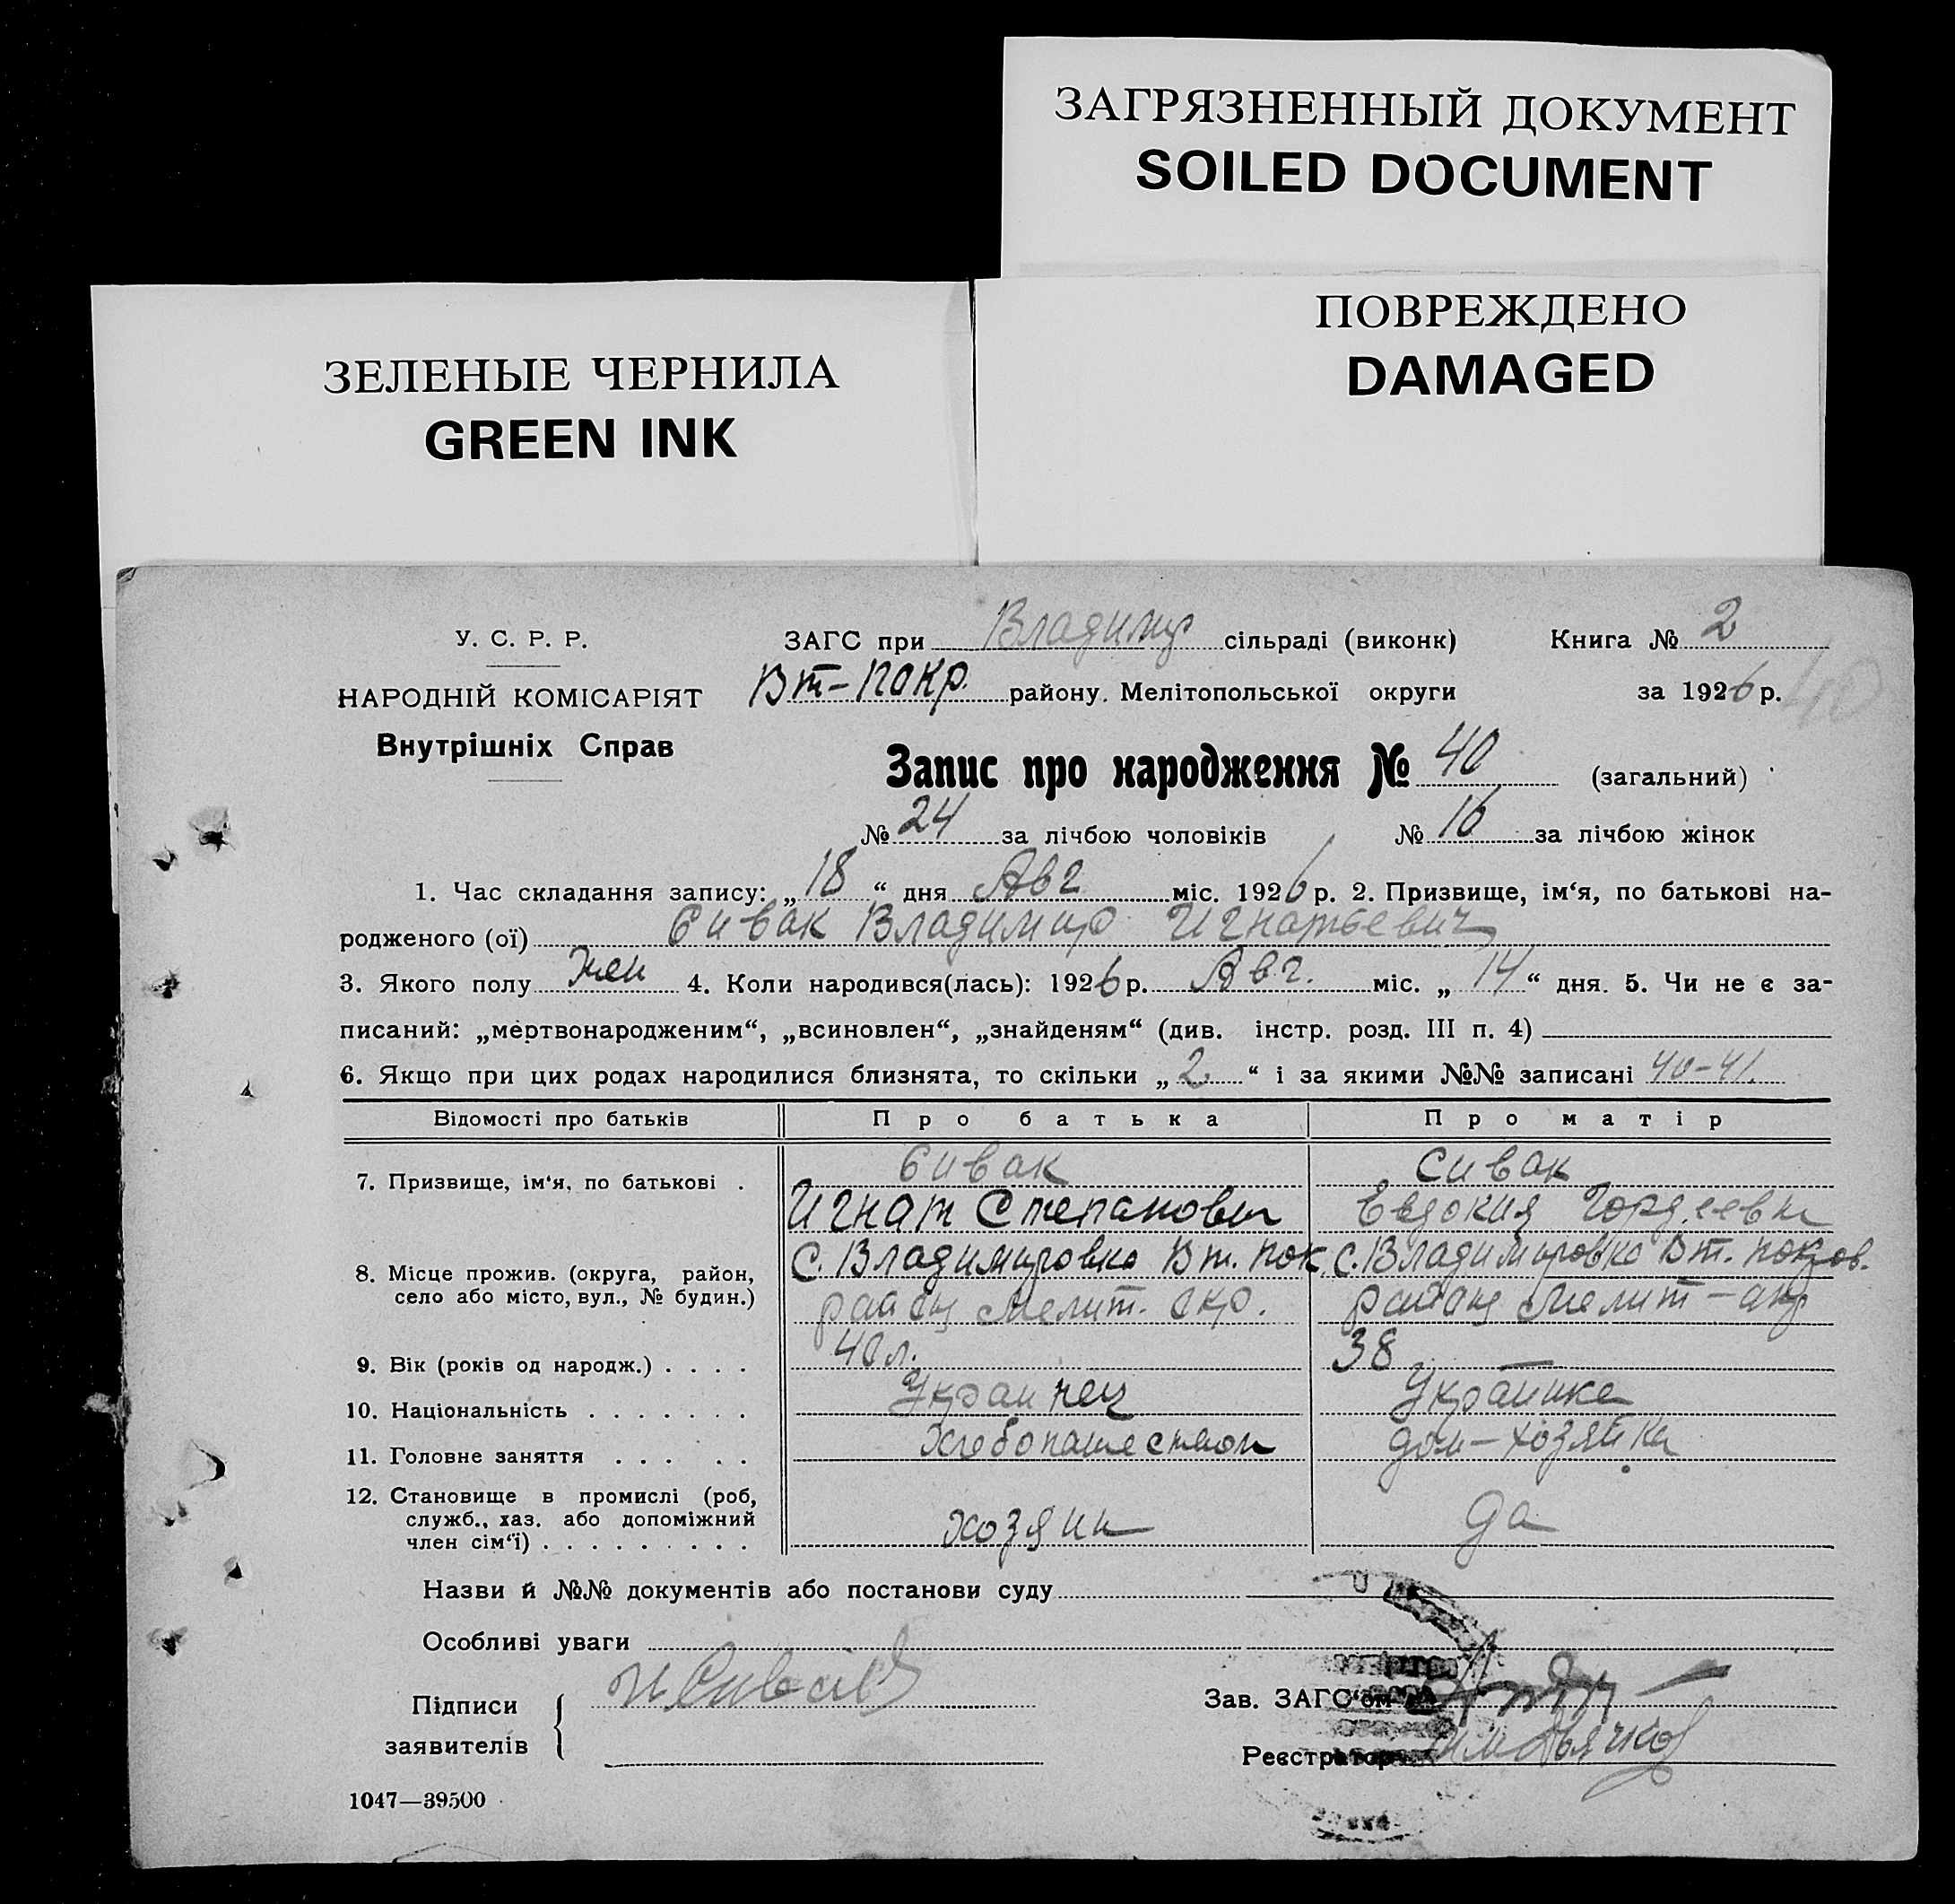 ЗАГРЯЗНЕННЫЙ ДОКУМЕНТ
SOILED DOCUMENT
ПОВРЕЖДЕНО
DAMAGED
ЗЕЛЕНЫЕ ЧЕРНИЛА
GREEN INK
У. С. Р. Р.
НАРОДНІЙ КОМІСАРІЯТ
Внутрішніх Справ
ЗАГС при Владимир сільраді (виконк) Книга № 2
Вт-покр. району. Мелітопольської округи за 1926 р. 40
Запис про народження № 40 (загальний)
№ 24 за лічбою чоловіків № 16 за лічбою жінок
1. Час складання запису: „18“ дня Авг міс. 1926 р. 2. Призвище, ім‘я, по батькові на-
родженого (ої) Сивак Владимир Игнатьевич
3. Якого полу Жен 4. Коли народився(лась): 1926 р. Авг. міс. „14“ дня. 5. Чи не є за-
писаний: „мертвонародженим“, „всиновлен“, „знайденям“ (див. інстр. розд. III п. 4)
6. Якщо при цих родах народилися близнята, то скільки „2“ і за якими №№ записані 40-41.
Відомості про батьків Про батька Про матір
7. Призвище, ім‘я, по батькові . Сивак Сивак
Игнат Степанович Евдокия Гордеевна
8. Місце прожив. (округа, район, С. Владимировка Вт. Пок. С. Владимировка Вт. Покров.
село або місто, вул., № будин.) района Мелит. окр. района Мелит-окр
9. Вік (років од народж.) . . . . 40 л. 38
10. Національність . . . . . . . Украинец Украинка
11. Головне заняття . . . . . Хлебопашеством дом-хозяйка
12. Становище в промислі (роб,
служб., хаз. або допоміжний хозяин да
член сім‘ї) . . . . . . . . .
Назви й №№ документів або постанови суду
Особливі уваги
Підписи
заявителів
И Сивак
Зав. ЗАГС‘ом
Реєстратор Дьячков
1047—39500